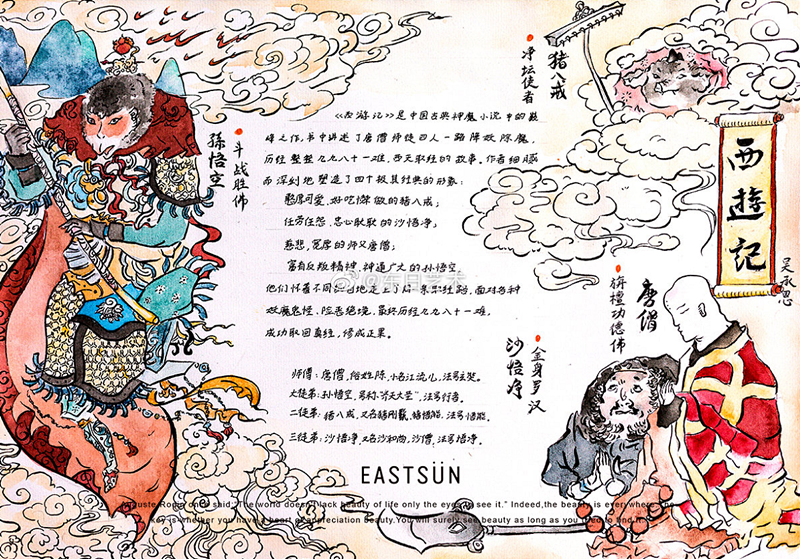 西遊記
吴承恩
猪八戒
净坛使者
孙悟空
斗战胜佛
唐僧
旃檀功德佛
沙悟净
金身罗汉
《西游记》是中国古典神魔小说中的巅
峰之作,书中讲述了唐僧师徒四人一路降妖除魔,
历经整整九九八十一难,西天取经的故事。作者细腻
而深刻地塑造了四个极其经典的形象:
憨厚可爱、好吃懒做的猪八戒;
任劳任怨、忠心耿耿的沙悟净;
慈悲、宽厚的师父唐僧;
富有反叛精神、神通广大的孙悟空
他们怀着不同目的地走上了同一条取经路,面对各种
妖魔鬼怪、险恶绝境,最终历经九九八十一难,
成功取回真经,修成正果。
师傅:唐僧,俗姓陈,小名江流儿,法号玄奘。
大徒弟:孙悟空,号称"齐天大圣",法号行者。
二徒弟:猪八戒,又名猪刚鬣、猪悟能,法号悟能。
三徒弟:沙悟净,又名沙和尚,沙僧,法号悟净。
@东日艺术
EASTSÜN
Auguste Rodin once said,"The world doesn't lack beauty of life only the eyes to see it." Indeed,the beauty is everywhere.The
key is whether you have a heart of appreciation beauty.You will surely see beauty as long as you need to find it.